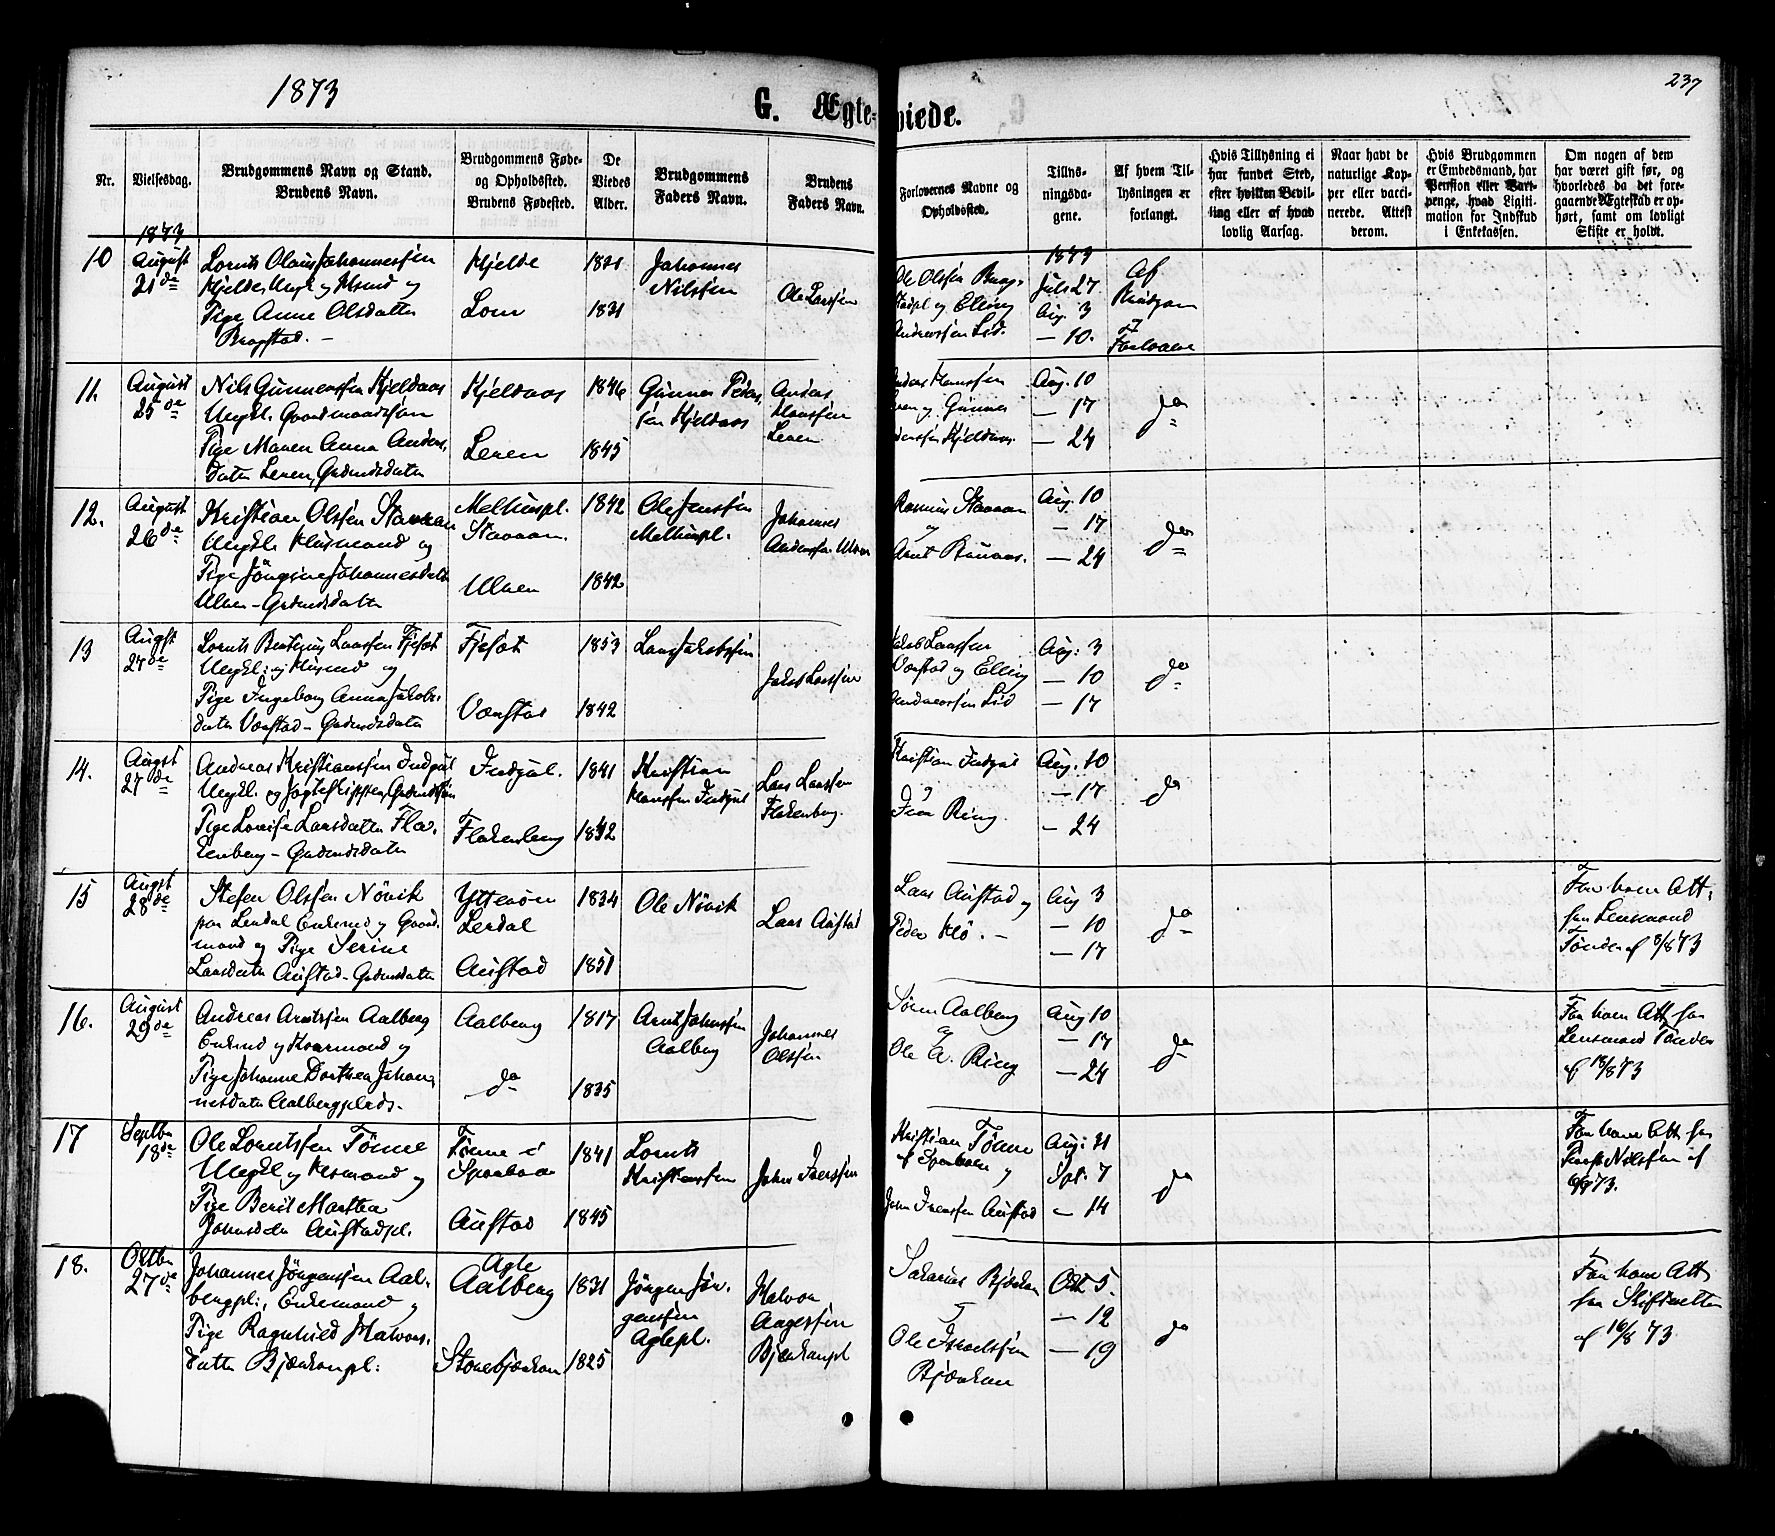 1873
237
G. Ægte-
viede.
Nr.
Vielsesdag.
Brudgommens Navn og Stand.
Brudens Navn.
Brudgommens Føde-
og Opholdssted.
Brudens Fødested.
De
Viedes
Alder.
Brudgommens
Faders Navn.
Brudens
Faders Navn.
Forlovernes Navne og
Opholdssted.
Tillys-
ningsda-
gene.
Af hvem Til-
lysningen er
forlangt.
Hvis Tillysning ei
har fundet Sted,
efter hvilken Bevil-
ling eller af hvad
lovlig Aarsag.
Naar havt de
naturlige Kop-
per eller vacci-
nerede. Attest
derom.
Hvis Brudgommen
er Embedsmand, har
Pension eller Vart-
penge, hvad Legiti-
mation for Indskud
i Enkekassen.
Om nogen af dem
har været gift før, og
hvorledes da det fore-
gaaende Ægteskab er op-
hørt, samt om lovligt
Skifte er holdt.
1873
10
August
21de
Lornts Olaus Johannessen
Kjelde, Ungk. og Husmd og
Pige Anne Olsdatter
Bragstad. –
Kjelde
Lom
1821
1831
Johannes
Nilssen
Ole Larssen
Ole Olssen Brag-
stadpl og Elling
Andreassen Lid.
1873
Juli 27
Aug. 3
– 10.
Af
Brudgom
&
Forlovere
11.
August
25de
Nils Gunnerssen Kjeldaas
Ungkl. Gaardmandssøn
Pige Maren Anna Anders-
datter Leren, Gaardmdsdatter
Kjeldaas
Leren
1846
1845
Gunner Peders-
sen Kjeldaas
Anders
Hanssen
Leren
Anders Hanssen
Leren og Gunner
Pederssen Kjeldaas.
Aug. 10
– 17
– 24
do
12.
August
26de
Kristian Olssen Stavran
Ungkl. Husmand og
Pige Jörgine Johannesdatter
Ulven – Gaardmdsdatter
Melhuspl.
Stavran.
Ulven
1842
1842
Ole Jenssen
Melhuspl.
Johannes
Anderssen Ulven
Rasmus Stavran
og
Arnt Brunaas.
Aug. 10
– 17
– 24
do
13
Augst
27de
Lornts Larssen Fjesøt
Ungkl. og Husmd og
Pige Ingeborg Anna Jakobs-
datter Værstad – Gaardmdsdatter
Fjesøt
Værstad
1853
1842
Lars Jakobssen
Jakob Larssen
Jakob Larssen
Værstad og Elling
Andreassen Lid
Aug. 3
– 10
– 17
do
14.
Augst
27de
Andreas Kristianssen Indgul
Ungkl. og Jagteskipper, Gaardmdssøn
Pige Lovise Larsdatter Fla-
kenberg – Gaardmdsdatter
Indgul.
Flakenberg
1841
1842
Kristian
Hanssen Indgul
Lars Larssen
Flakenberg.
Kristian Indgul
og
Iver Ring.
Aug. 10
– 17
– 24
do
15
Augst
28de
Stefen Olssen Növik
paa Lerdal Enkemd og Gaard-
mand og Pige Serine
Larsdatter Austad – Gaardmdsdatter
Ytterøen
Lerdal
Austad
1834
1851
Ole Növik
Lars Austad
Lars Austad og
Peder Klö. –
Aug 3
– 10
– 17
do
Før ham Att-
fra Lensmand
Tönder af 8/8 73
16.
August
29de
Andreas Arntssen Aalberg
Enkmd og Kaarmand og
Pige Johanne Dorthea Johan-
nesdatter Aalbergplads.
Aalberg
do
1817
1835
Arnt Johnssen
Aalberg
Johannes
Olssen
Sören Aalberg
og
Ole A. Ring
Aug 10
– 17
– 24
do
Før ham Att fra
Lensmand Tönder
af 18/8 73
17
Septbr
18de
Ole Lorntssen Tönne
Ungkl og Husmand og
Pige Berit Martha
Johnsdtr Austadpl.
Tönne i
Sparboen
Austad
1841
1845
Lornts
Kristianssen
John Iverssen
Kristian Tönne
af Sparboen og
John Iverssen Austad
Aug. 31
Spt. 7
– 14
do
18.
Oktbr
27de
Johannes Jörgenssen Aal-
bergpl., Enkemand og
Pige Ragnhild Halvors-
datter Bjerkanpl:
Agle
Aalberg
Storebjerkan
1831
1825
Jörgen Jör-
genssen
Aglepl.
Halvor
Aagessen
Bjerkanpl
Sakarias Bjerkan
&
Ole Israelssen
Bjerkan
Okt 5.
– 12
– 19
do
Før ham Att
fra Skifteretten
af 16/8 73